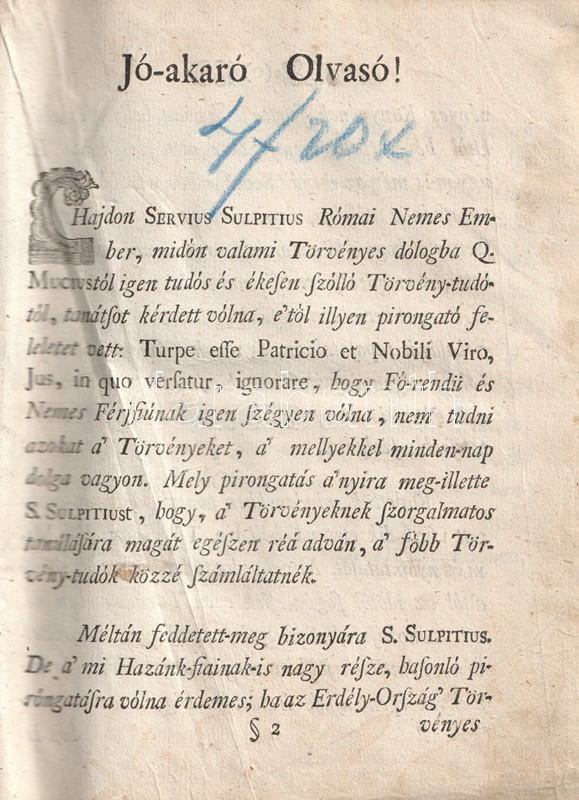 Jó-akaró Olvasó!
4/20 x
CHajdon SERVIUS SULPITIUS Római Nemes Em-
ber, midőn valami Törvényes dólogba Q.
MUCIUStól igen tudós és ékeſen ſzólló Törvény-tudó-
tól, tanátſot kérdett vólna, e'től illyen pirongató fe-
leletet vett: Turpe eſſe Patricio et Nobili Viro,
Jus, in quo verſatur, ignorare, hogy Fő-rendü és
Nemes Férjfiúnak igen ſzégyen vólna, nem tudni
azokat a' Törvényeket, a' mellyekkel minden-nap
dolga vagyon. Mely pirongatás a'nyira meg-illette
S. SULPITIUST, hogy, a' Törvényeknek ſzorgalmatos
tanúláſára magát egéſzen réá adván, a' főbb Tör-
vény-tudók közzé ſzámláltatnék.
Méltán feddetett-meg bizonyára S. SULPITIUS.
De a' mi Hazánk-fiainak-is nagy réſze, haſonló pi-
rongatáſra vólna érdemes; ha az Erdély-Orſzág' Tör-
§ 2 vényes